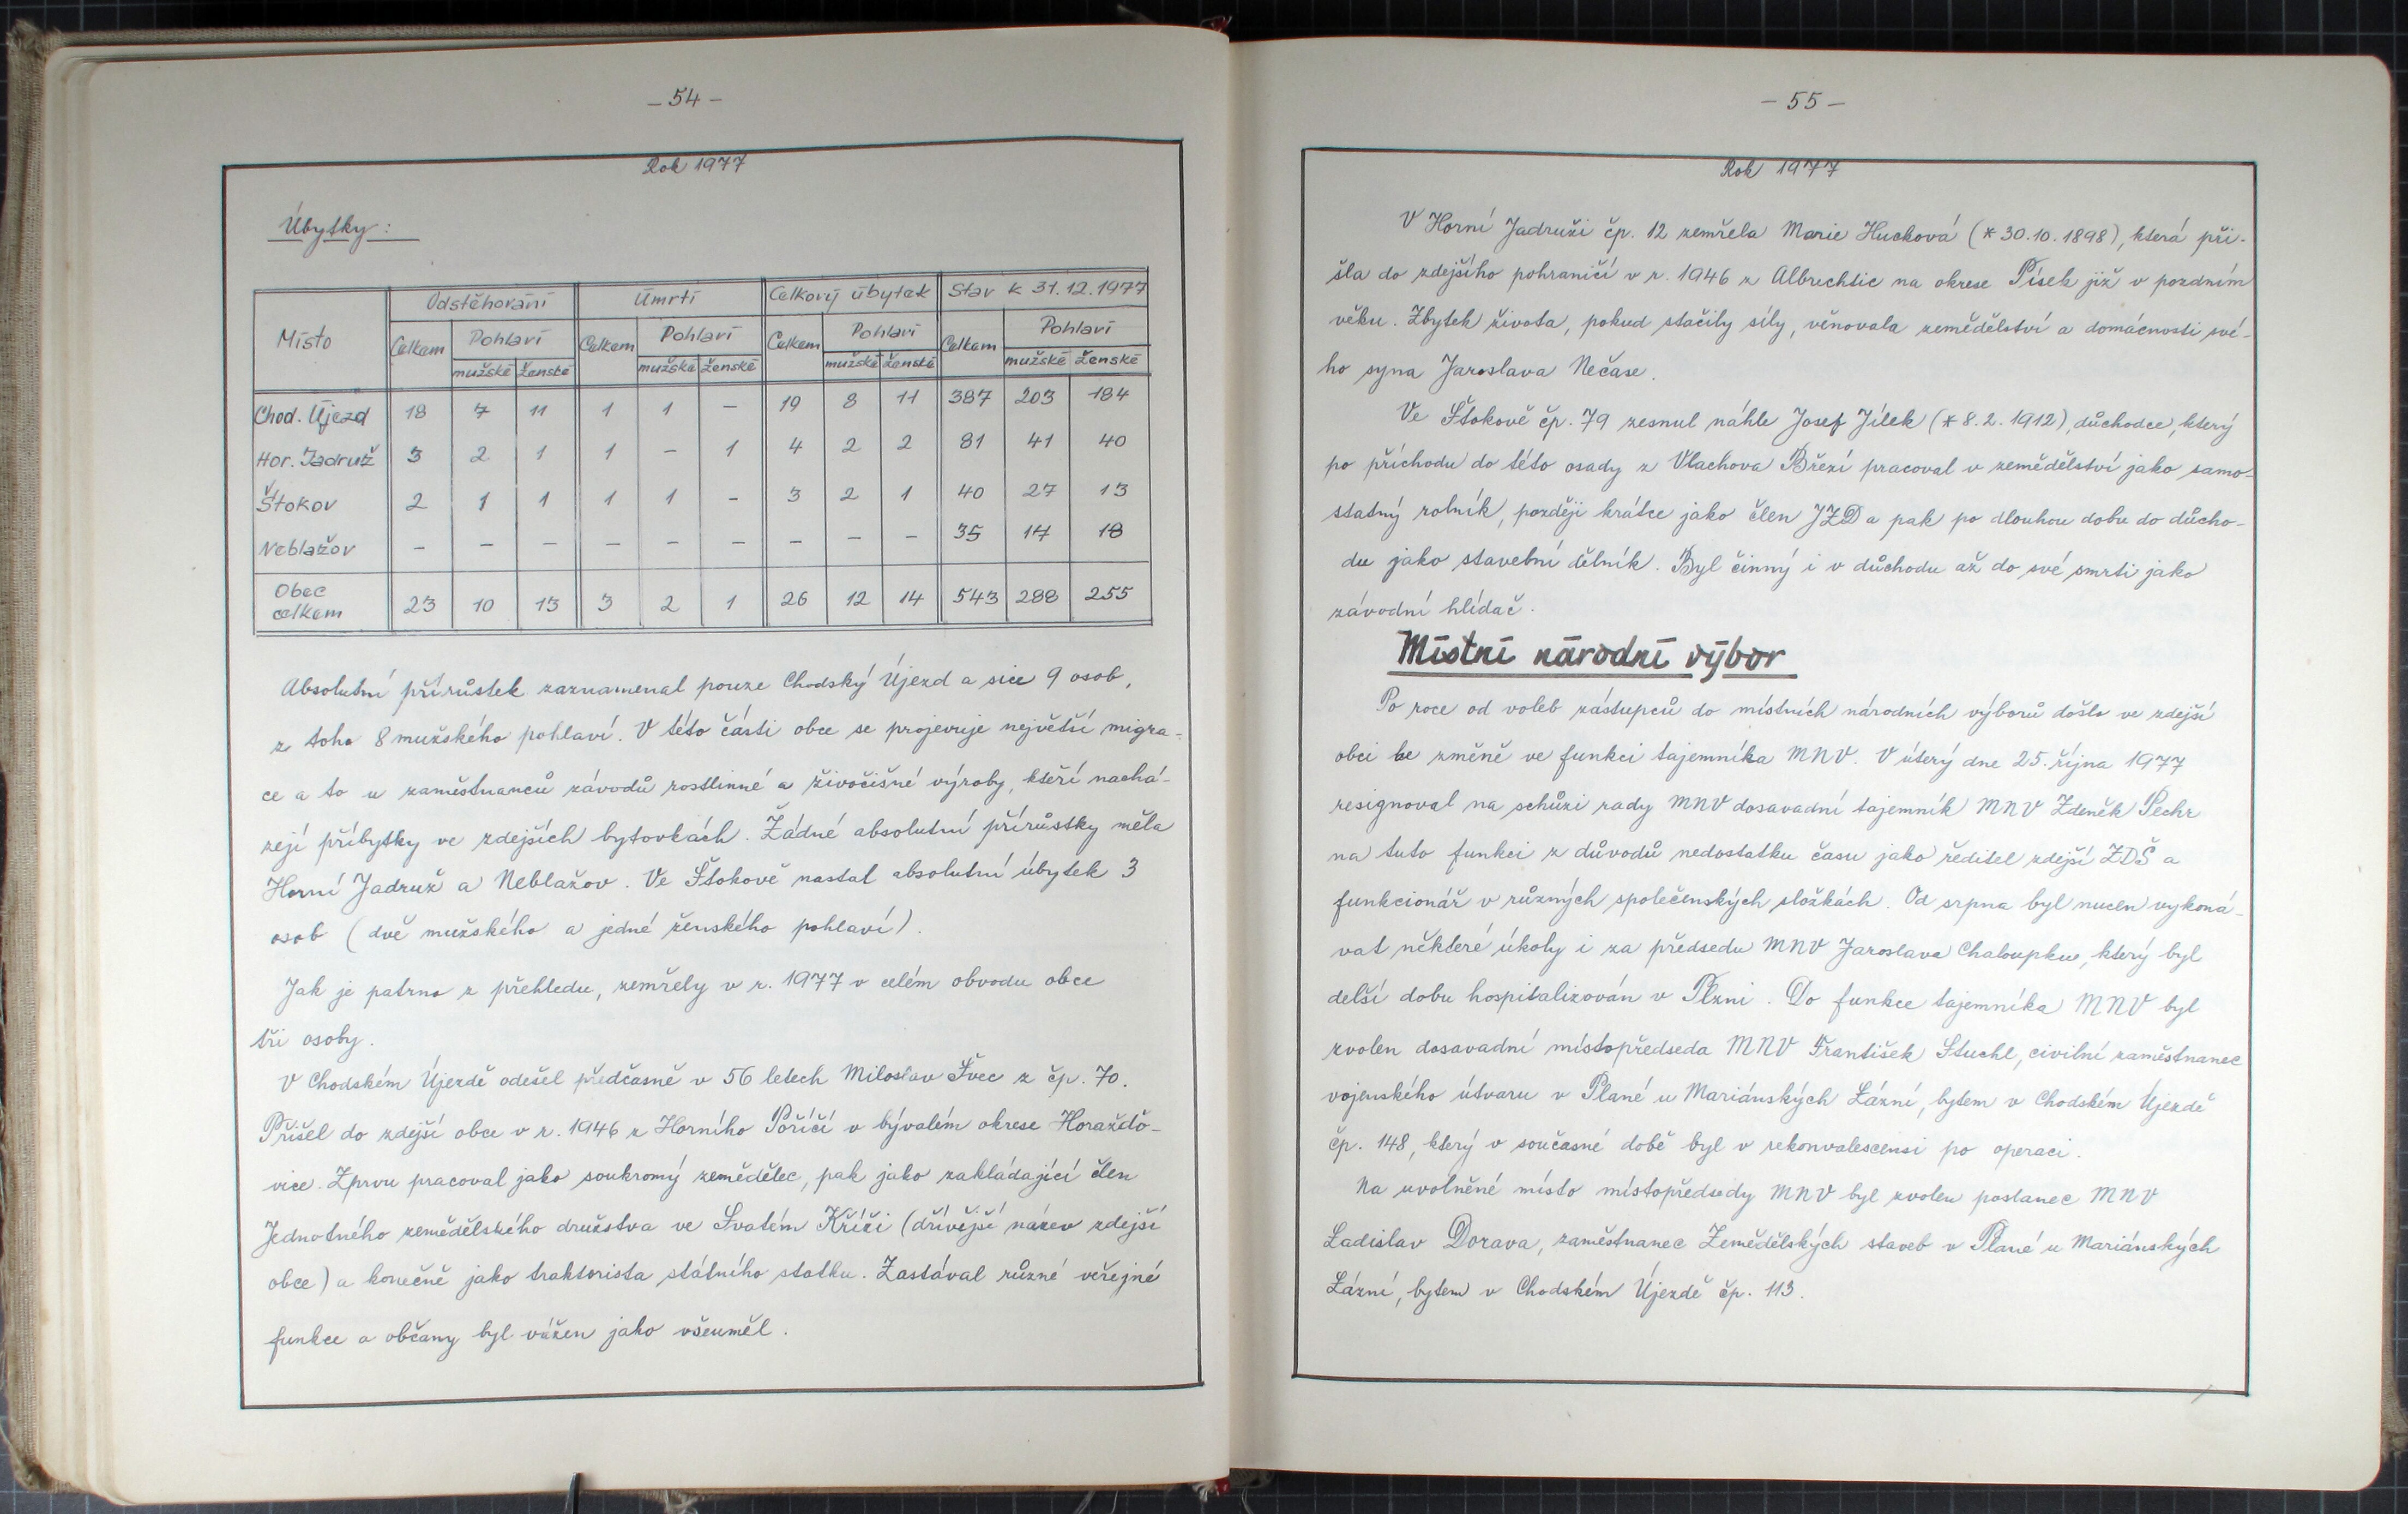 – 54 –
Rok 1977
Úbytky:
Místo | Odstěhování | Úmrtí | Celkový úbytek | Stav k 31.12.1977
Celkem | Pohlaví | Celkem | Pohlaví | Celkem | Pohlaví | Celkem | Pohlaví
mužské | ženské | mužské | ženské | mužské | ženské | mužské | ženské
Chod. Újezd | 18 | 7 | 11 | 1 | 1 | – | 19 | 8 | 11 | 387 | 203 | 184
Hor. Jadruž | 3 | 2 | 1 | 1 | – | 1 | 4 | 2 | 2 | 81 | 41 | 40
Štokov | 2 | 1 | 1 | 1 | 1 | – | 3 | 2 | 1 | 40 | 27 | 13
Neblažov | – | – | – | – | – | – | – | – | – | 35 | 17 | 18
Obec
celkem | 23 | 10 | 13 | 3 | 2 | 1 | 26 | 12 | 14 | 543 | 288 | 255
Absolutní přírůstek zaznamenal pouze Chodský Újezd a sice 9 osob,
z toho 8 mužského pohlaví. V této části obce se projevuje největší migra-
ce a to u zaměstnanců závodů rostlinné a živočišné výroby, kteří nachá-
zejí příbytky ve zdejších bytovkách. Žádné absolutní přírůstky měla
Horní Jadruž a Neblažov. Ve Štokově nastal absolutní úbytek 3
osob (dvě mužského a jedné ženského pohlaví).
Jak je patrno z přehledu, zemřely v r. 1977 v celém obvodu obce
tři osoby.
V Chodském Újezdě odešel předčasně v 56 letech Miloslav Švec z čp. 70.
Přišel do zdejší obce v r. 1946 z Horního Poříčí v bývalém okrese Horažďo-
vice. Zprvu pracoval jako soukromý zemědělec, pak jako zakládající člen
Jednotného zemědělského družstva ve Svatém Kříži (dřívější název zdejší
obce) a konečně jako traktorista státního statku. Zastával různé veřejné
funkce a občany byl vážen jako všeuměl.
– 55 –
Rok 1977
V Horní Jadruži čp. 12 zemřela Marie Hucková (* 30.10.1898), která při-
šla do zdejšího pohraničí v r. 1946 z Albrechtic na okrese Písek již v pozdním
věku. Zbytek života, pokud stačily síly, věnovala zemědělství a domácnosti své-
ho syna Jaroslava Nečase.
Ve Štokově čp. 79 zesnul náhle Josef Jílek (* 8.2.1912), důchodce, který
po příchodu do této osady z Vlachova Březí pracoval v zemědělství jako samo-
statný rolník, později krátce jako člen JZD a pak po dlouhou dobu do důcho-
du jako stavební dělník. Byl činný i v důchodu až do své smrti jako
závodní hlídač.
Místní národní výbor
Po roce od voleb zástupců do místních národních výborů došlo ve zdejší
obci ke změně ve funkci tajemníka MNV. V úterý dne 25. října 1977
resignoval na schůzi rady MNV dosavadní tajemník MNV Zdeněk Pechr
na tuto funkci z důvodů nedostatku času jako ředitel zdejší ZDŠ a
funkcionář v různých společenských složkách. Od srpna byl nucen vykoná-
vat některé úkoly i za předsedu MNV Jaroslava Chaloupku, který byl
delší dobu hospitalizován v Plzni. Do funkce tajemníka MNV byl
zvolen dosavadní místopředseda MNV František Stuchl, civilní zaměstnanec
vojenského útvaru v Plané u Mariánských Lázní, bytem v Chodském Újezdě
čp. 148, který v současné době byl v rekonvalescensi po operaci.
Na uvolněné místo místopředsedy MNV byl zvolen poslanec MNV
Ladislav Dorava, zaměstnanec Zemědělských staveb v Plané u Mariánských
Lázní, bytem v Chodském Újezdě čp. 113.